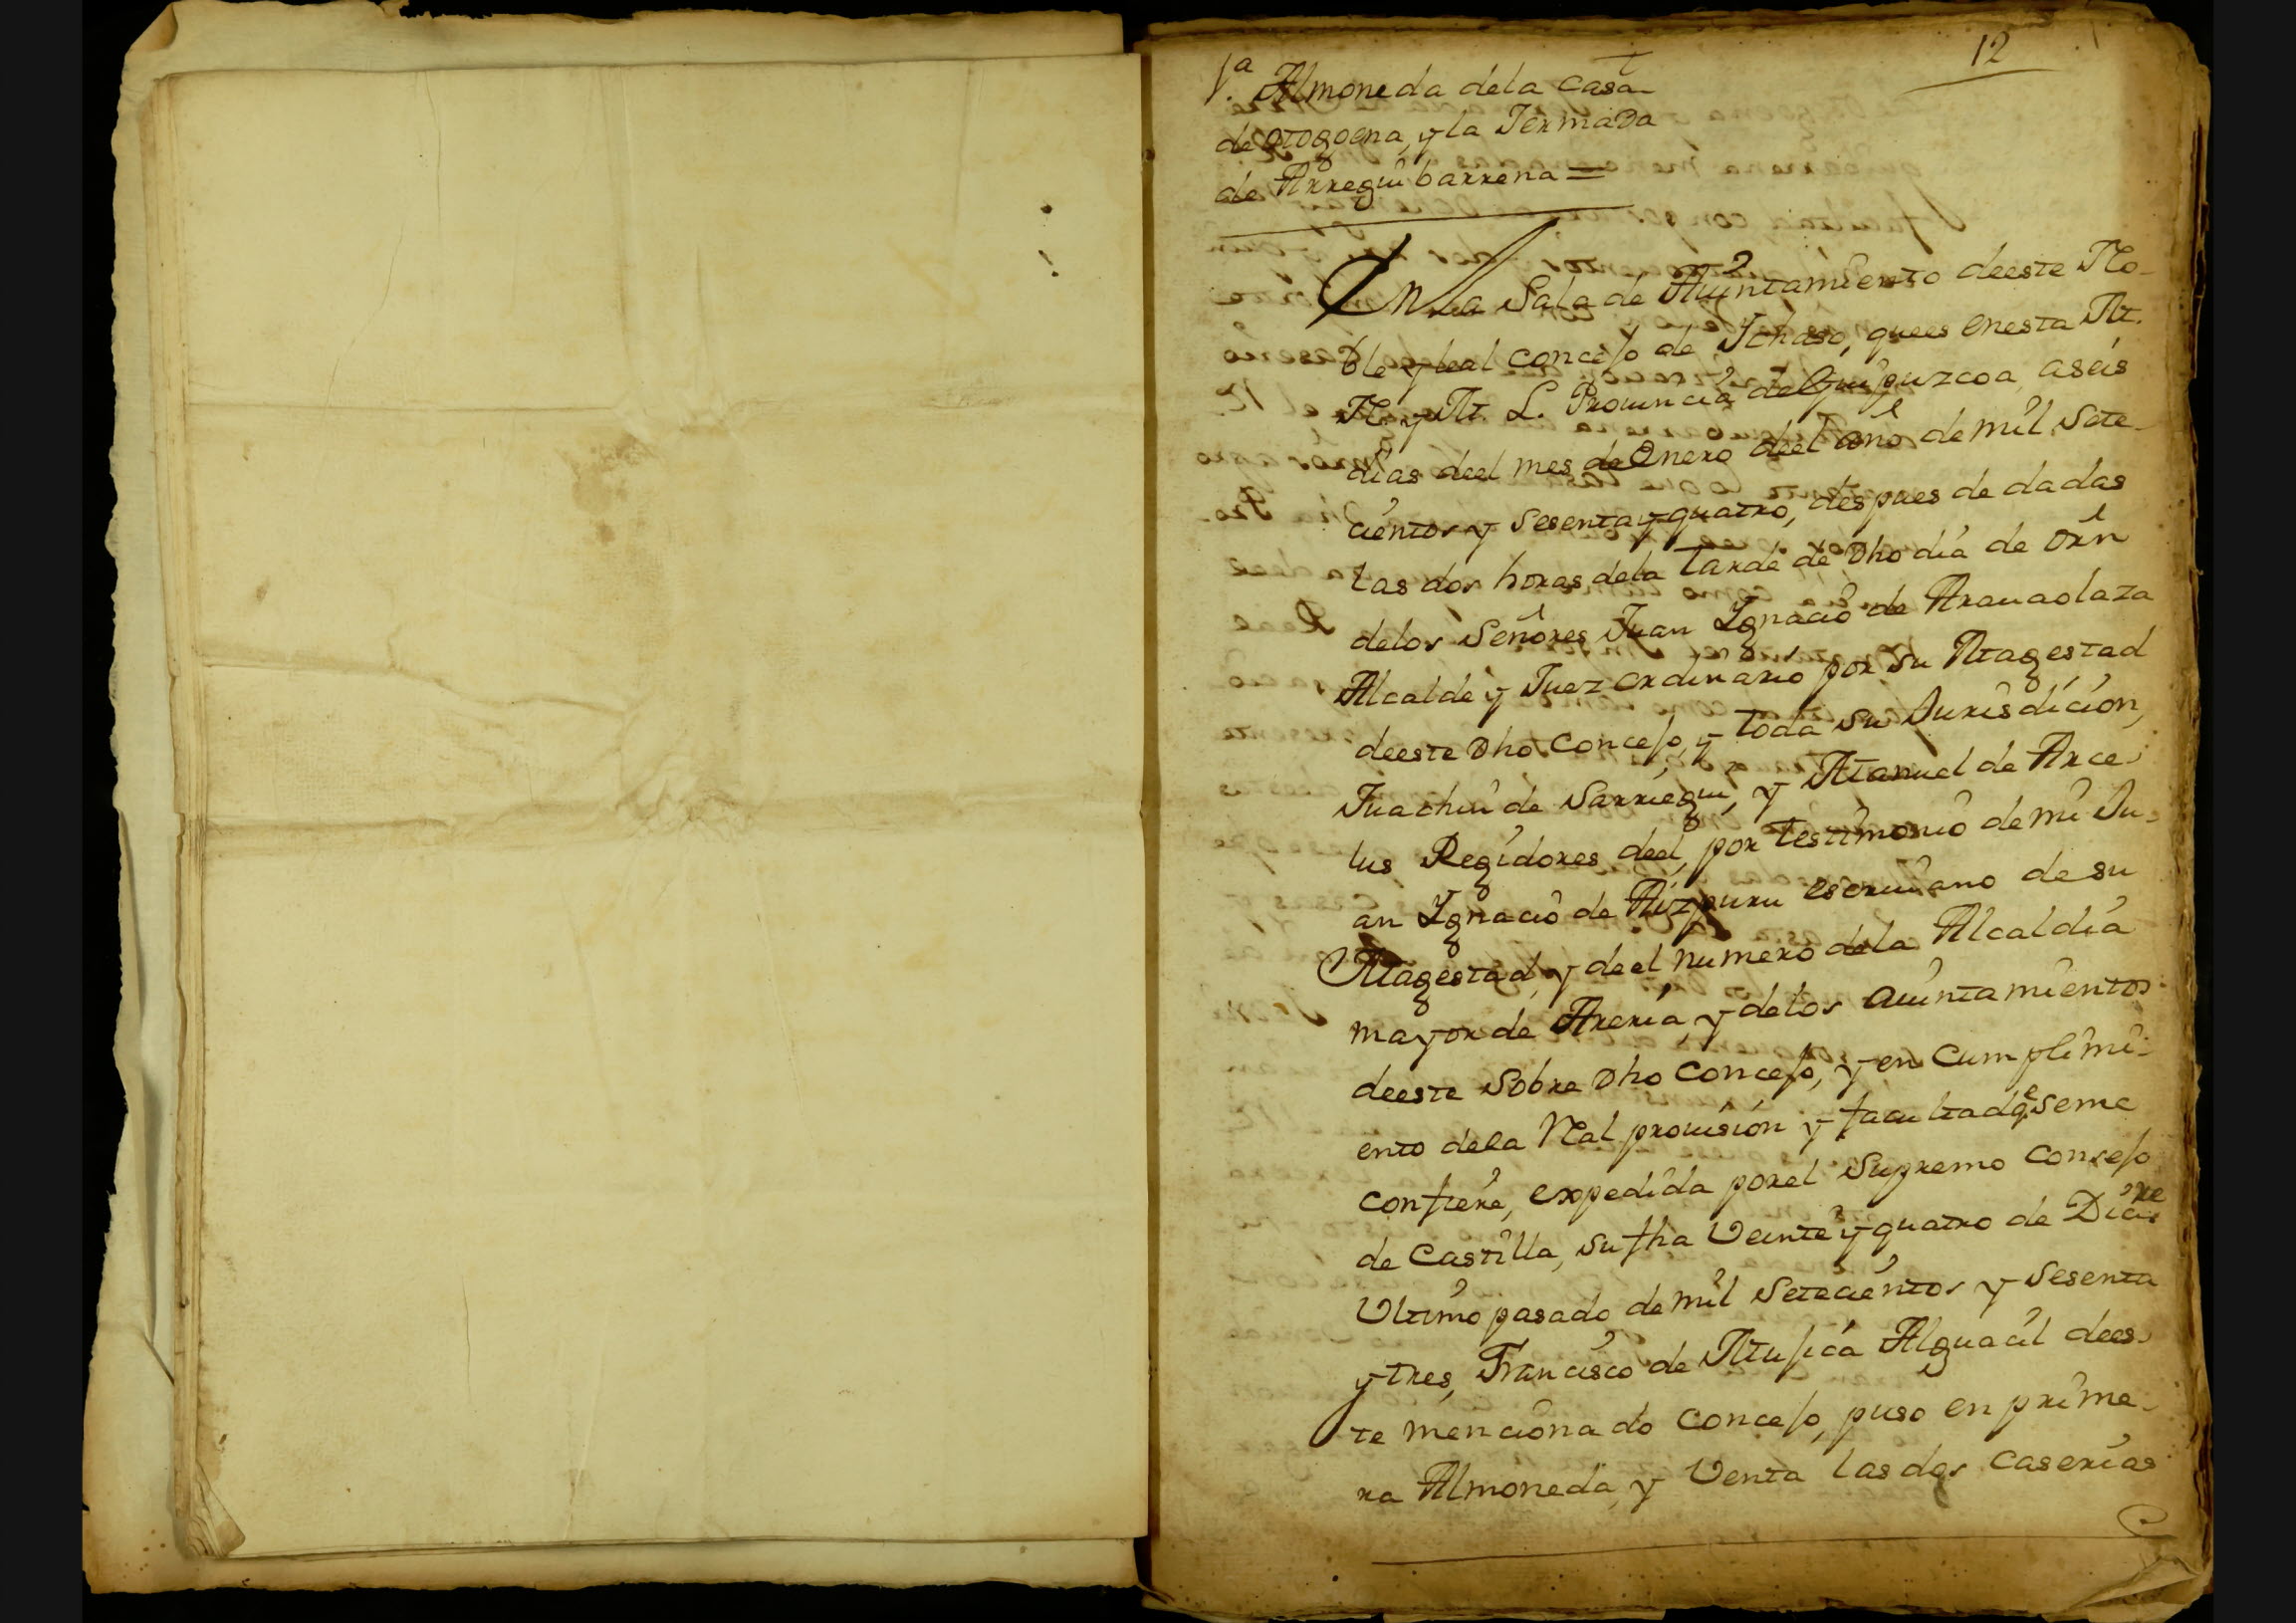 12
1.ª Almoneda dela casa
de otogoena, y la Jermada
de Arregui barrena =
En la Sala de Aiuntamiento deeste No-
ble y leal concejo de Ichaso, quees enesta M.
N. y M. L. Prouincia de Guipuzcoa, aseis
dias deel mes de Enero deel año de mil Sete-
cientos y Sesenta y quatro, despues de dadas
las dos horas dela tarde de dho dia de orn
delos Señores Juan Ignacio de Aranaolaza
Alcalde y Juez ordinario por su Magestad
deeste dho Concejo, y toda su Jurisdicion,
Juachin de Sarriegui, y Manuel de Arce-
lus Regidores deel, por testimonio de mi Ju-
an Ignacio de Aizpuru escriuano de su
Magestad, y deel numero dela Alcaldia
mayor de Areria, y delos aiuntamientos
deeste Sobre dho Concejo, y en Cumplimi-
ento dela Real prouision y facultad qe seme
confiere, expedida porel Supremo Consejo
de Castilla, su fha Veinte y quatro de Dicire
Ultimo pasado de mil Setecientos y Sesenta
y tres, Francisco de Mujica Alguacil dees-
te mencionado Concejo, puso en prime-
ra Almoneda, y Venta las dos Caserias